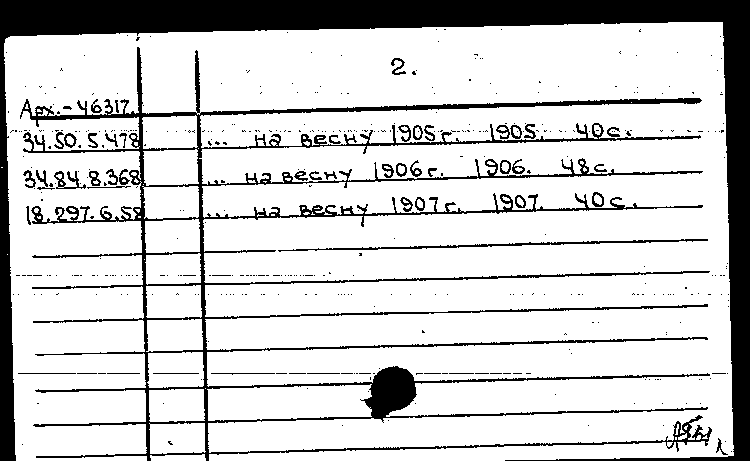 2.
Арх.-46317.
34.50.5.478 ... на весну 1905г. 1905. 40с.
34.84.8.368 ... на весну 1906г. 1906. 48с.
18.297.6.58 ... на весну 1907г. 1907. 40с.